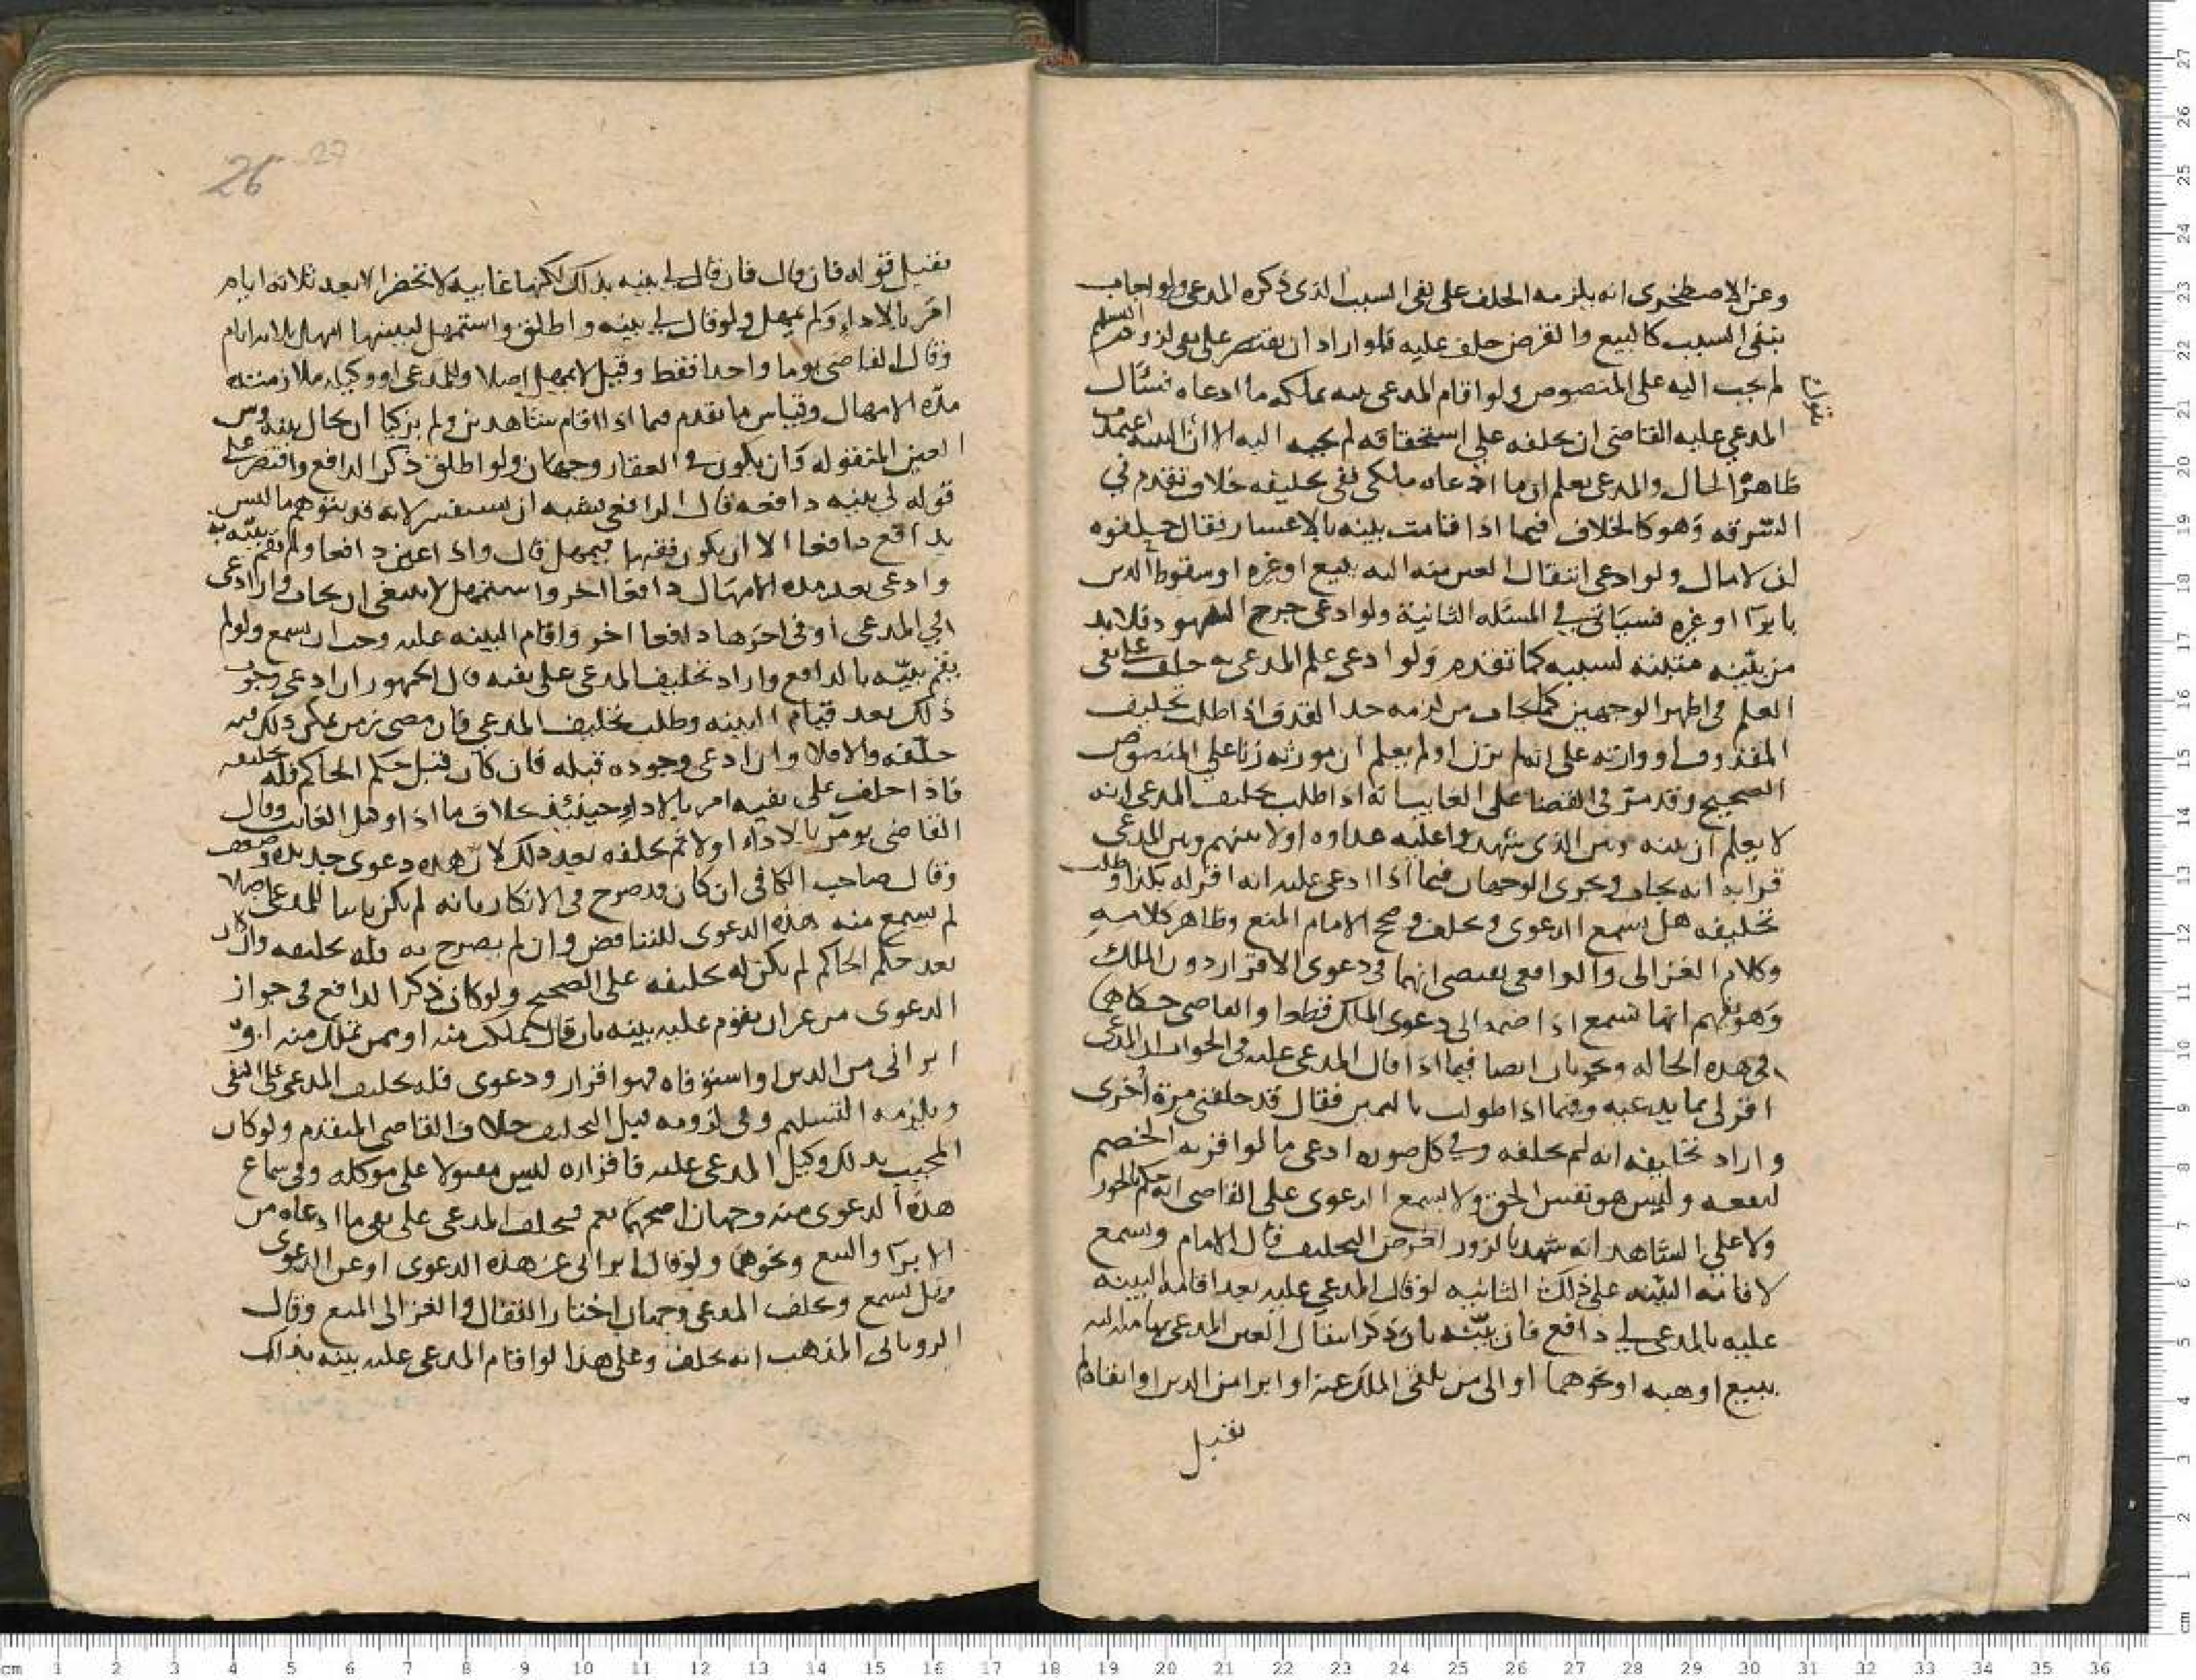 وعن الاصطخري انه يلزمه الحلف على نفي السبب الذي ذكره المدعي ولو اجاب
بنفي السبب كالبيع والقرض حلف عليه فلو اراد ان يقتصر على نفي لزوم التسليم
لم يجب اليه على المنصوص ولو اقام المدعي بينه بملكه ما ادعاه فسأل
المدعي عليه القاضي ان يحلفه على استحقاقه لم يجبه اليه الا ان البينه اعتمدت
ظاهر الحال والمدعي يعلم ان ما ادعاه ملكي ففي تحليفه خلاف تقدم في
السرقه وهو كالخلاف فيما اذا قامت بينه بالاعسار فقال حلفوه
لقد لا مال ولو ادعى انتقال العين منه اليه ببيع او غيره او سقوط الدين
بابرا او غيره فسياتي في المسئله الثانية ولو ادعى جرح الشهود فلا بد
من بينه مثبتة لسببه كما تقدم ولو ادعى علم المدعي به حلف على نفي
العلم في اظهر الوجهين كما يجاب من لزمه حد القذف اذا طلب تحليف
المقذوف او وارثه على انه لم يزن او لم يعلم ان مورثه زنا على المنصوص
الصحيح وقد مر في القضا على الغايب انه اذا طلب تحليف المدعي انه
لا يعلم ان بينه وبين الذي شهدوا عليه عداوه او لا بينهم وبين المدعي
قرابه انه يجاب ويجري الوجهان فيما اذا ادعى عليه انه اقر له بكذا وطلب
تحليفه هل يسمع الدعوى ويحلف وصحح الامام المنع وظاهر كلامه
وكلام الغزالي والرافعي يقتضي انهما في دعوى الاقرار دون الملك
وهو يفهم انها تسمع اذا ضمه الى دعوى الملك قطعا والقاضي حكاهما
في هذه الحاله ويجريان ايضا فيما اذا قال المدعي عليه في الجواب ان المدعي
اقر لي بما يدعيه وفيما اذا طولب باليمين فقال قد حلفني مرة أخرى
واراد تحليفه انه لم يحلفه وفي كل صوره ادعى ما لو اقر به الخصم
لنفعه وليس هو نفس الحق ولا يسمع الدعوى على القاضي انه حكم بالجور
ولا على الشاهد انه شهد بالزور لغرض التحليف قال الامام وتسمع
لاقامة البينه على ذلك الثانيه لو قال المدعي عليه بعد اقامه البينه
عليه بالمدعى لي دافع فان بينه بان ذكر انتقال العين المدعى بها منه اليه
ببيع او هبه او نحوهما او الى من تلقى الملك عنه او ابرا من الدين او ايفا
تقبل
26 27
تقبل قوله فان قال فان قال لي بينه بذلك لكنها غايبه لا تحضر الا بعد ثلاثه ايام
امر بالاداء ولم يمهل ولو قال لي بينه واطلق واستمهل ليبينها امهل ثلاثه ايام
وقال القاضي يوما واحدا فقط وقيل لا يمهل اصلا وللمدعي او وكيله ملازمته
مده الامهال وقياس ما تقدم فيما اذا اقام شاهدين ولم يزكيا ان يحال بينه وبين
العين المنقوله وان يكون في العقار وجهان ولو اطلق ذكر الدافع واقتصر على
قوله لي بينه دافعه قال الرافعي يشبه ان يستفسر لانه قد يتوهم ما ليس
بدافع دافعا الا ان يكون فقيها فيمهل قال واذا عين دافعا ولم تقم بينه به
وادعى بعد مده الامهال دافعا اخر واستمهل لا ينبغي ان يجاب وان ادعى
في المدعي او في اخرها دافعا اخر واقام البينه عليه وجب ان يسمع ولو لم
يقم بينه بالدافع واراد تحليف المدعي على نفيه قال الجمهور ان ادعى وجود
ذلك بعد قيام البينه وطلب تحليف المدعي فان مضى زمن يمكن ذلك فيه
حلفه والا فلا وان ادعى وجوده قبله فان كان قبل حكم الحاكم فله تحليفه
فاذا حلف على نفيه امر بالاداء وحينئذ بخلاف ما اذا وهل الغايب وقال
القاضي يومر بالاداء اولا ثم يحلفه بعد ذلك لان هذه دعوى جديده وضعف
وقال صاحب الكافي ان كان قد صرح في الانكار بانه لم يكن ثابتا للمدعي اصلا
لم يسمع منه هذه الدعوى للتناقض وان لم يصرح به فله تحليفه وان كان
بعد حكم الحاكم لم يكن له تحليفه على الصحيح ولو كان ذكر الدافع في جواز
الدعوى من غير ان يقوم عليه بينه بان قال تملكت منه او ممن تملك منه او
ابراني من الدين او استوفاه فهو اقرار ودعوى فله تحليف المدعي على النفي
ويلزمه التسليم وفي لزومه قبل التحليف خلاف القاضي المتقدم ولو كان
المجيب بذلك وكيل المدعي عليه فاقراره ليس مقبولا على موكله وفي سماع
هذه الدعوى منه وجهان اصحهما نعم فيحلف المدعي على نفي ما ادعاه من
الابرا والبيع ونحوهما ولو قال ابراني عن هذه الدعوى او عن الدعوى
فهل تسمع ويحلف المدعي وجهان اختار القفال والغزالي المنع وقال
الروياني المذهب انه يحلف وعلى هذا لو اقام المدعي عليه بينه بذلك